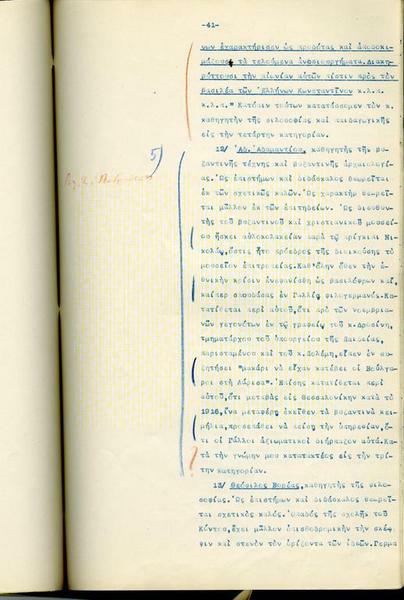 -41-
νων ἐχαρακτήρισεν ὡς προδότας καὶ ἀποδοκι-
μάζουσι τὰ τελούμενα ἀνοσιουργήματα. Διακη-
ρύττουσι τὴν αἰωνίαν αὐτῶν πίστιν πρὸς τὸν
βασιλέα τῶν Ἑλλήνων Κωνσταντῖνον κ.λ.π.
κ.λ.π." Κατόπιν τούτων κατατάσσομεν τὸν κ.
καθηγητὴν τῆς φιλοσοφίας καὶ παιδαγωγικῆς
εἰς τὴν τετάρτην κατηγορίαν.
12/ Ἀδ. Ἀδαμαντίου, καθηγητὴς τῆς βυ-
ζαντινῆς τέχνης καὶ βυζαντινῆς ἀρχαιολογί-
ας. Ὡς ἐπιστήμων καὶ διδάσκαλος θεωρεῖται
ἐκ τῶν σχετικῶς καλῶν. Ὡς χαρακτὴρ θεωρεῖ-
ται μᾶλλον ἐκ τῶν ἐπιτηδείων. Ὡς διευθυν-
τὴς τοῦ βυζαντινοῦ καὶ χριστιανικοῦ μουσεί-
ου ἤσκει αὐλοκολακείαν παρὰ τῷ πρίγκιπι Νι-
κολάῳ, ὅστις ἦτο πρόεδρος τῆς διοικούσης τὸ
μουσεῖον ἐπιτροπείας. Καθ' ὅλην ὅθεν τὴν ἐ-
θνικὴν κρίσιν ἀνεφάνθη ὡς βασιλόφρων καί,
καίπερ σπουδάσας ἐν Γαλλίᾳ φιλογερμανός. Κα-
τατίθεται περὶ αὐτοῦ, ὅτι πρὸ τῶν νοεμβρια-
νῶν γεγονότων ἐν τῷ γραφείῳ τοῦ κ. Δροσίνη,
τμηματάρχου τοῦ ὑπουργείου τῆς Παιδείας,
παρισταμένου καὶ τοῦ κ. Πολέμη, εἶπεν ἐν συ-
ζητήσει "μακάρι νὰ εἶχαν κατέβει οἱ Βούλγα-
ροι στὴ Λάρισα". Ἐπίσης κατατίθεται περὶ
αὐτοῦ, ὅτι μεταβὰς εἰς Θεσσαλονίκην κατὰ τὸ
1916, ἵνα μεταφέρῃ ἐκεῖθεν τὰ βυζαντινὰ κει-
μήλια, προσεπάθει νὰ πείσῃ τὴν ὑπηρεσίαν, ὅ-
τι οἱ Γάλλοι ἀξιωματικοὶ διήρπαζον αὐτά. Κα-
τὰ τὴν γνώμην μου κατατακτέος εἰς τὴν τρί-
την κατηγορίαν.
13/ Θεόφιλος Βορέας, καθηγητὴς τῆς φιλο-
σοφίας. Ὡς ἐπιστήμων καὶ διδάσκαλος θεωρεῖ-
ται σχετικῶς καλός. Ὀπαδὸς τῆς σχολῆς τοῦ
Κόντου, ἔχει μᾶλλον ὀπισθοδρομικὴν τὴν σκέ-
ψιν καὶ στενὸν τὸν ὁρίζοντα τῶν ἰδεῶν. Γερμα
5)